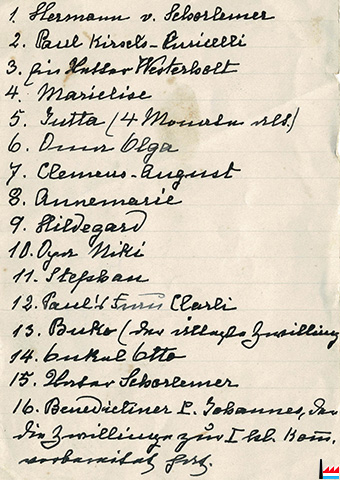 1. Hermann v. Schorlemer
2. Paul Kirsch-Puricelli
3. Westerholt
4. Marielise
5. Jutta (4 Monate alt.)
6. Oma Olga
7. Clemens-August
8. Annemarie
9. Hildegard
10. Opa Niki
11. Stephan
12. Paul's Frau Clarli
13. Buko (der Zwilling
14. Onkel Otto
15. Schorlemer
16. Benediktiner P. Johannes, der
die Zwillinge zur I hl. Kom.
vorbereitet hat.